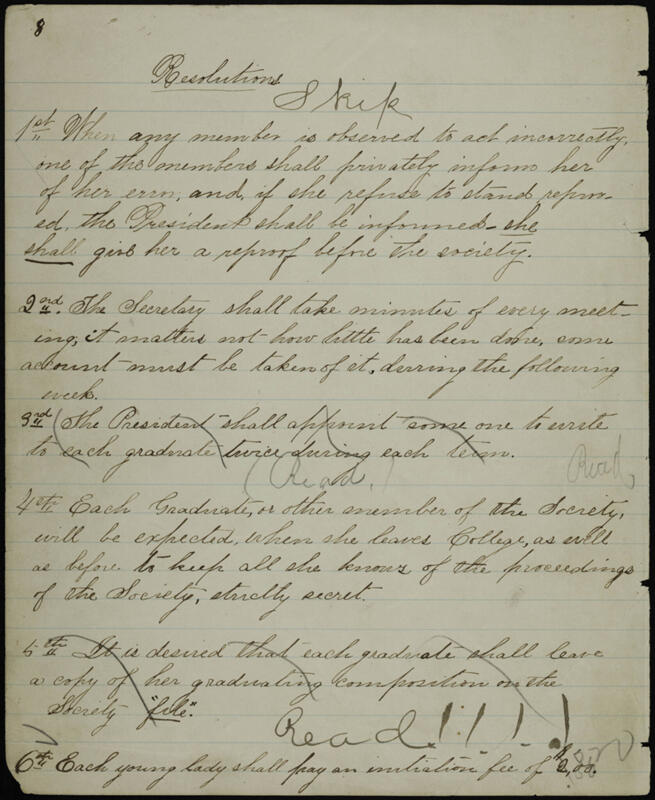 8
Resolutions
Skip
1st When any member is observed to act incorrectly,
one of the members shall privately inform her
of her error, and, if she refuse to stand reprov-
ed, the President shall be informed - she
shall give her a reproof before the society.
2nd. The Secretary shall take minutes of every meet-
ing; it matters not how little has been done, some
account must be taken of it, durring the following
week.
3rd (The President shall appoint some one to write
to each graduate twice during each term.
(Read.)
Read
4th Each Graduate, or other member of the Society,
will be expected, when she leaves College, as well
as before to keep all she knows of the proceedings
of the Society, strictly secret.
5th It is desired that each graduate shall leave
a copy of her graduating composition on the
Society "file".
Read!!!!!
6th Each young lady shall pay an initiation fee of $2,00.